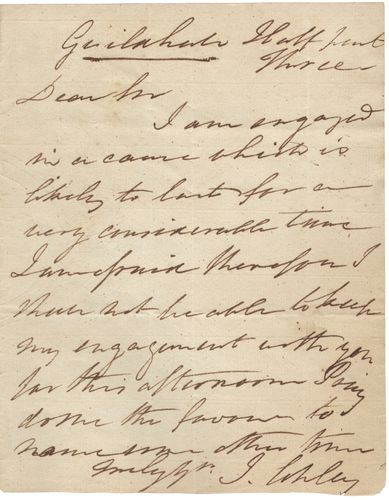 Guildhall Half past
Three
Dear Sir
I am engaged
in a cause which is
likely to last for a
very considerable time
I am afraid therefore I
shall not be able to keep
my engagement with you
for this afternoon Pray
do me the favour to
name some other time
Truly Yrs J.